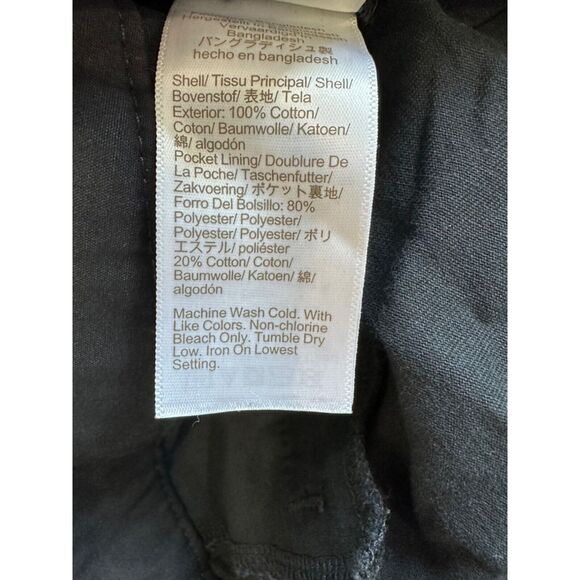 Hergestellt in Bangladesh
Vervaardigd in
Bangladesh
バングラディシュ製
hecho en bangladesh
Shell/ Tissu Principal/ Shell/
Bovenstof/ 表地/ Tela
Exterior: 100% Cotton/
Coton/ Baumwolle/ Katoen/
綿/ algodón
Pocket Lining/ Doublure De
La Poche/ Taschenfutter/
Zakvoering/ ポケット裏地/
Forro Del Bolsillo: 80%
Polyester/ Polyester/
Polyester/ Polyester/ ポリ
エステル/ poliéster
20% Cotton/ Coton/
Baumwolle/ Katoen/ 綿/
algodón
Machine Wash Cold. With
Like Colors. Non-chlorine
Bleach Only. Tumble Dry
Low. Iron On Lowest
Setting.